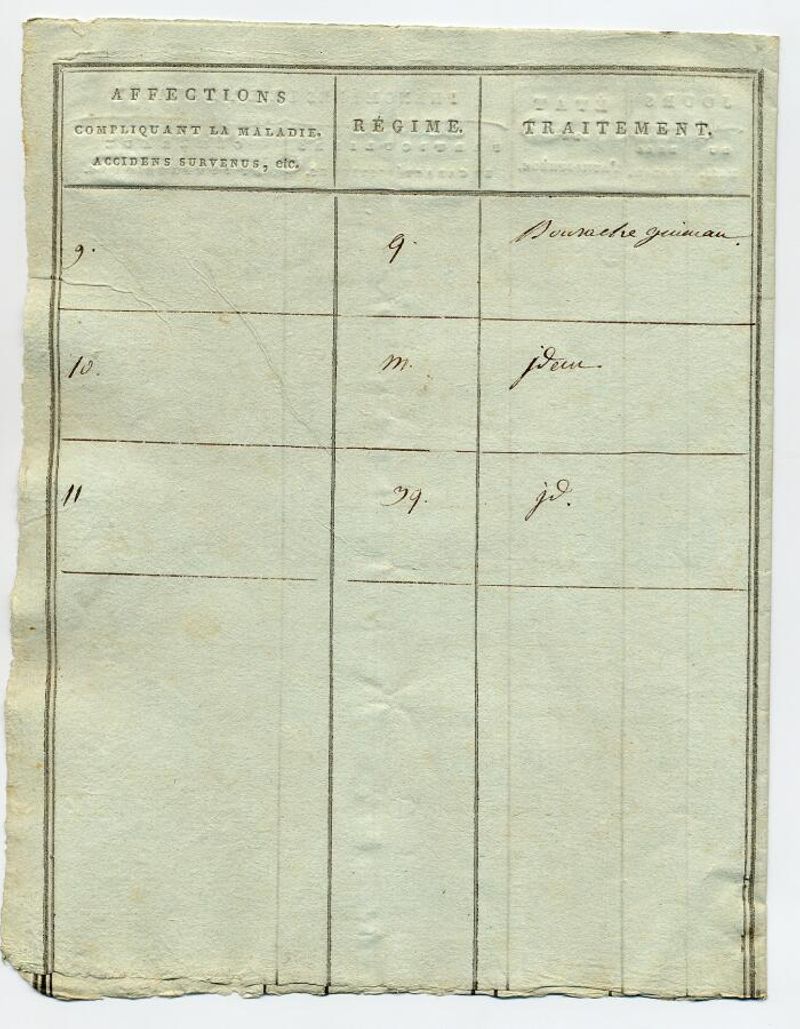 AFFECTIONS
COMPLIQUANT LA MALADIE.
ACCIDENS SURVENUS, etc.
RÉGIME.
TRAITEMENT.
9. q. Bourache
10. m. jdem.
11 3q. jd.